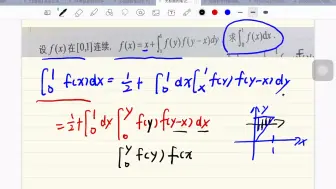 设 f(x) 在 [0,1] 连续, f(x)=x+∫ₓ¹ f(y)f(y−x)dy, 求 ∫₀¹ f(x)dx.
∫₀¹ f(x)dx = 1/2 + ∫₀¹ dx ∫ₓ¹ f(y) f(y-x) dy
= 1/2 + ∫₀¹ dy ∫₀ʸ f(y) f(y-x) dx
∫₀ʸ f(y) f(x
y
1
x